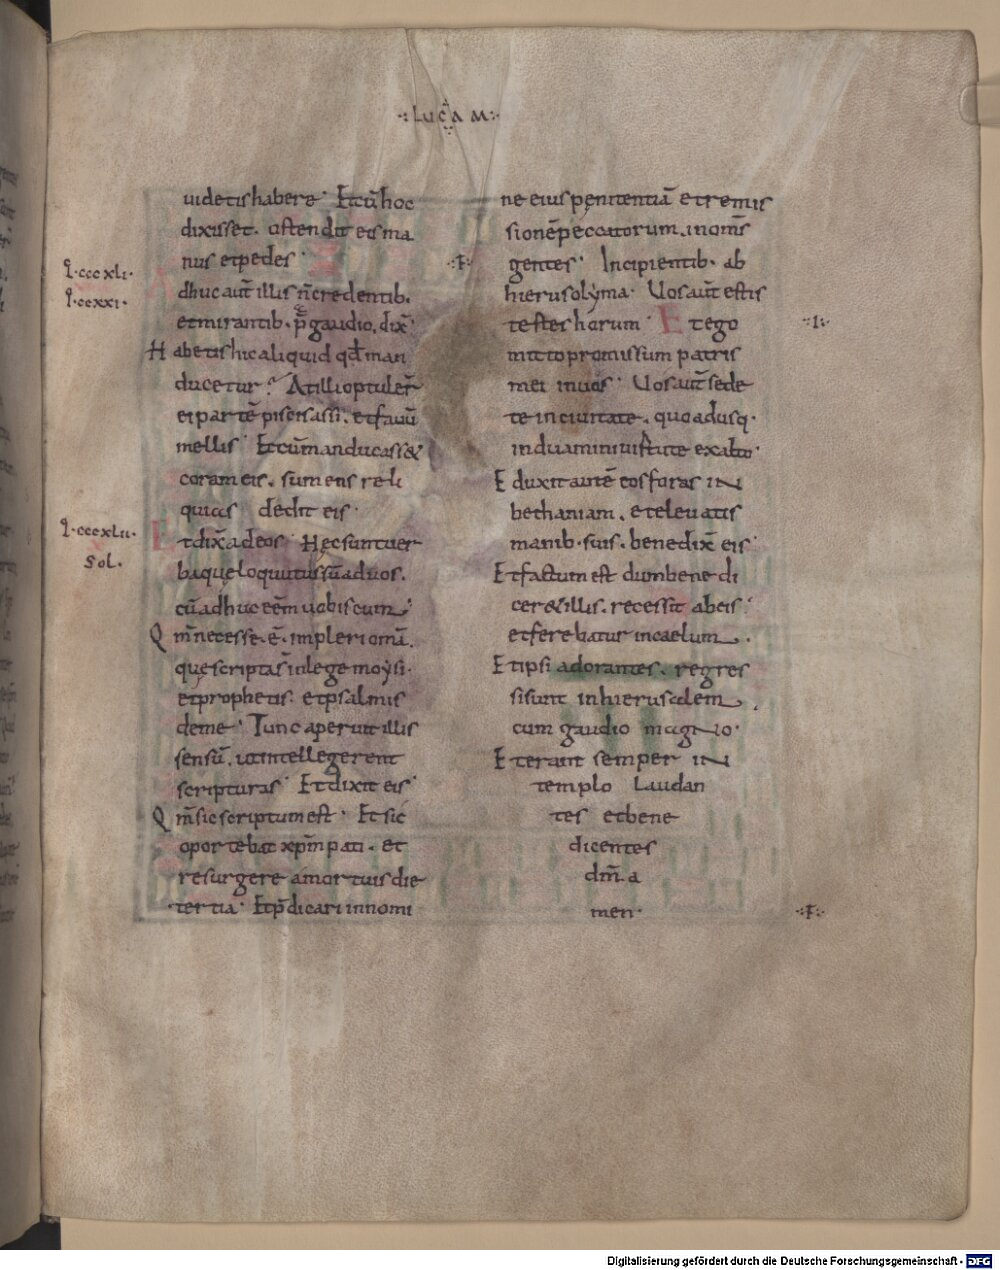 ·: LUCAM :·
uidetis habere· Et cū hoc
dixisset· ostendit eis ma
nus et pedes·
·ꝉ·cccxli·
·ꝉ·ccxxi·
Adhuc aūt illis n̄ credentib·
et mirantib· p̄ gaudio, dix̄·
Habetis hic aliquid qd̄ man
ducetur? At illi optuler̄
ei partē piscis assi· et fauū
mellis· Et cū manducass&
coram eis· sumens reli
quias dedit eis·
·ꝉ·cccxlii·
Sol.
Et dix̄ ad eos· Hec sunt uer
ba que loquutus sū ad uos·
cū adhuc eēm uobiscum·
Qm̄ necesse·ē· impleri omīa·
que scripta s̄ in lege moysi·
et prophetis· et psalmis
de me· Tunc aperuit illis
sensū· ut intellegerent
scripturas· Et dixit eis·
Qm̄ sic scriptum est· Et sic
oportebat xp̄m pati· et
resurgere a mortuis die
tertia· Et p̄dicari in nomi
ne eius penitentiā et remis
sionē peccatorum· in om̄s
gentes· Incipientib· ab
hierusolyma· Uos aūt estis
testes horum· Et ego
mitto promissum patris
mei in uos· Uos aūt sede
te in ciuitate· quo adusq·
induamini uirtute ex alto·
Eduxit autē eos foras in
bethaniam· et eleuatis
manib· suis· benedix̄ eis·
Et factum est dum bene di
cer& illis· recessit ab eis·
et ferebatur in caelum·
Et ipsi adorantes· regres
si sunt in hierusalem
cum gaudio magno·
Et erant semper in
templo Laudan
tes et bene
dicentes
dm̄·a
men·
Digitalisierung gefördert durch die Deutsche Forschungsgemeinschaft - DFG